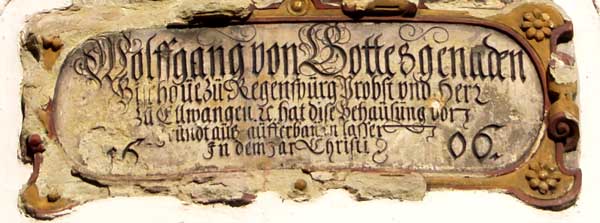 Wolffgang von Gottes genaden
Bischoue zu Regenspurg Probst vnd Herr
zu Ellwangen, ꝛc hat dise behausung von
grundt aus aufferbauen lassen
16 In dem Jar Christi 06.